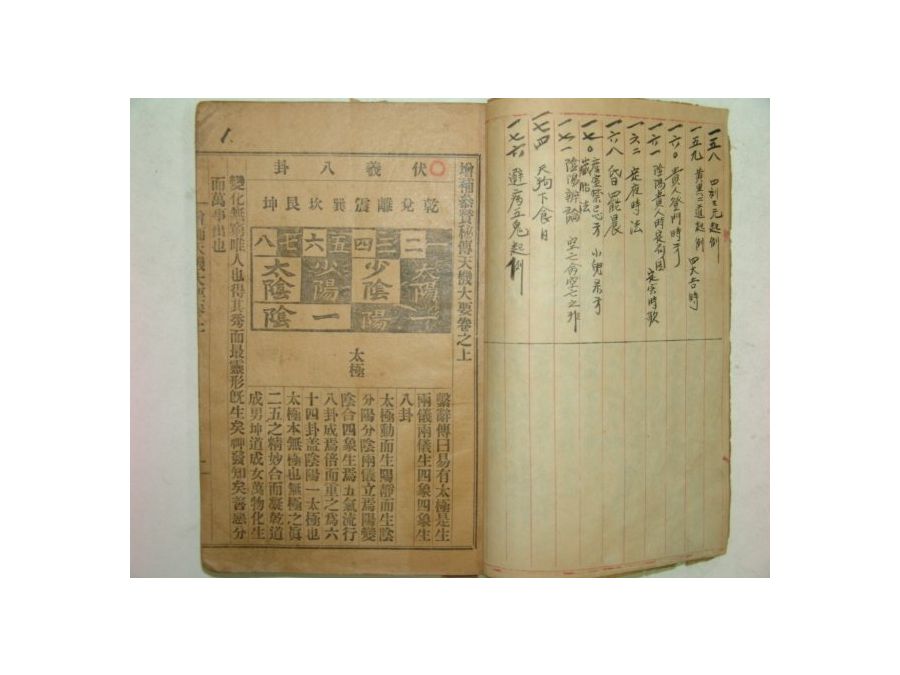 一五八 四刻三元起例
一五九 黃黑二道起例 四大吉時
一六〇 貴人登門時方
一六一 陰陽貴人時定局圖 定寅時歌
一六二 定夜時法
一六八 昏罷晨
一七〇 産室禁忌方 小兒吊方
藏胎法
一七一 陰陽辨論 空亡
一七四 天狗下食日
一七六 避病五鬼起例
增補參贊秘傳天機大要卷之上
伏羲八卦
乾兌離震巽坎艮坤
一二三四五六七八
太陽 少陰 少陽 太陰
陽 陰
太極
繫辭傳曰易有太極是生
兩儀兩儀生四象四象生
八卦
太極動而生陽靜而生陰
分陽分陰兩儀立焉陽變
陰合四象生焉五氣流行
八卦成焉倍而重之爲六
十四卦盖陰陽一太極也
太極本無極也無極之眞
二五之精妙合而凝乾道
成男坤道成女萬物化生
變化無窮唯人也得其秀而最靈形旣生矣神發知矣善惡分
而萬事出也
1.